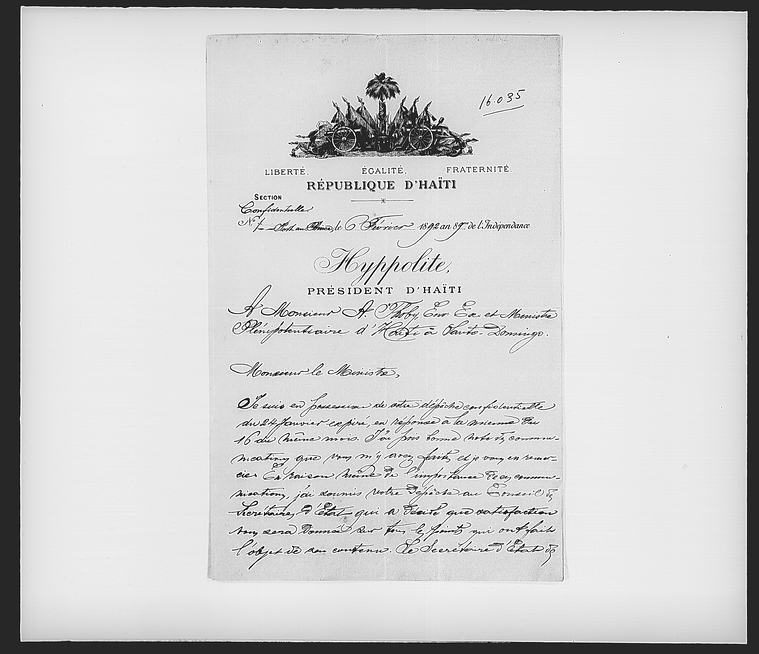 16.035
LIBERTÉ. ÉGALITÉ. FRATERNITÉ
RÉPUBLIQUE D'HAÏTI
SECTION
Confidentielle
N° 1 – Port au Prince, le 6 Février 1892 an 89e de l'Indépendance
Hyppolite,
PRÉSIDENT D'HAÏTI
A Monsieur A Thoby, Env Ex. et Ministre
Plénipotentiaire d'Haïti à Santo-Domingo.
Monsieur le Ministre,
Je suis en possession de votre dépêche confidentielle
du 24 Janvier expiré, en réponse à la mienne du
16 du même mois. J'ai pris bonne note des commu-
nications que vous m'y avez faites et je vous en remer-
cie. En raison même de l'importance de ces commu-
nications, j'ai soumis votre dépêche au Conseil des
Secrétaires d'Etat qui a décidé que satisfaction
vous sera donnée sur tous les points qui ont fait
l'objet de son contenu. Le Secrétaire d'Etat des